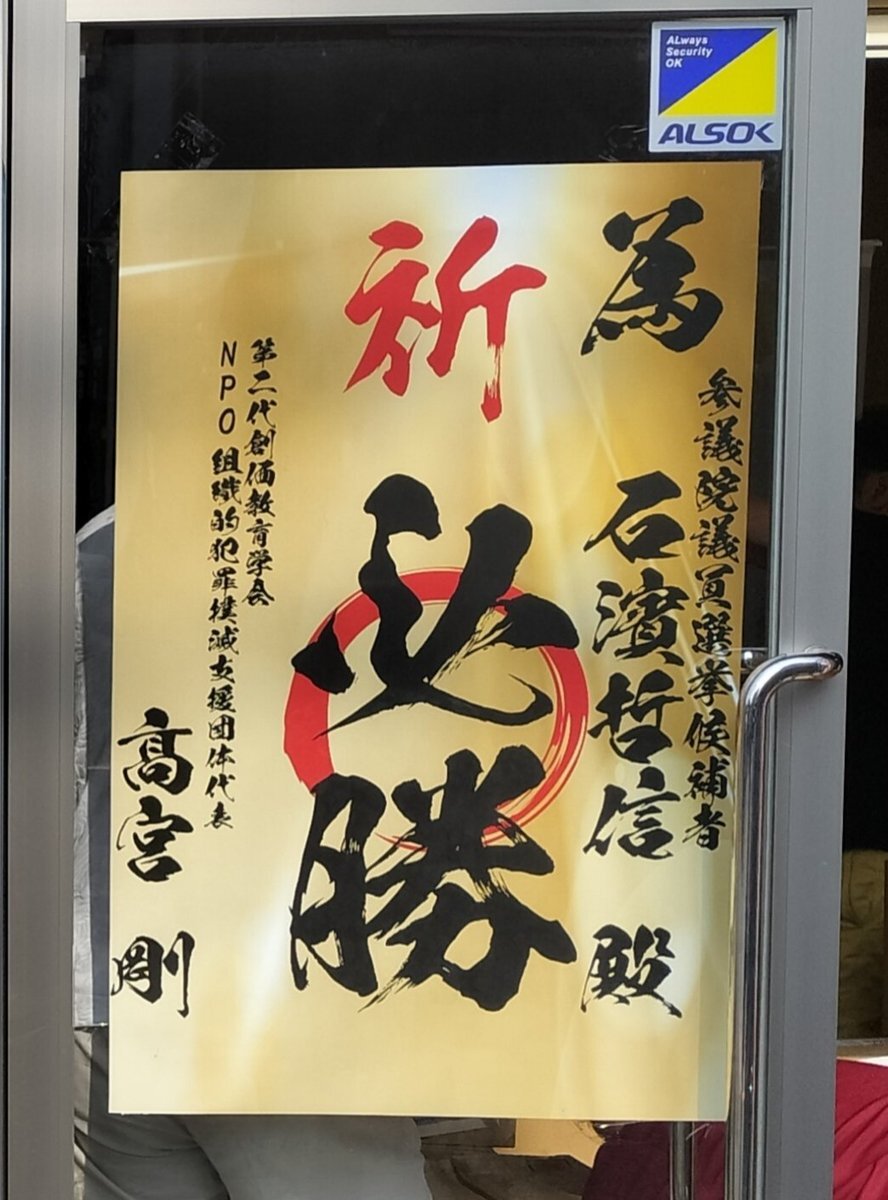 ALways
Security
OK
ALSOK
為
参議院議員選挙候補者
石濱哲信 殿
祈
必勝
第二代創価教育学会
NPO組織的犯罪撲滅支援団体代表
髙宮 剛